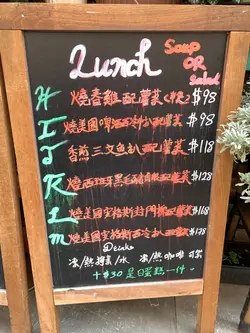 Lunch
Soup
OR
Salad
H 燒春雞配薯菜 $98
I 燒美國啤酒 配薯菜 $98
J 香煎三文魚扒配薯菜 $118
K 燒西班牙黑毛豬 配薯菜 $128
L 燒美國安格斯 配薯菜 $168
M 燒美國安格斯西冷扒配薯菜 $178
Drinks
凍/熱 /水 凍/熱咖啡 可樂
+$30 是日蛋糕一件